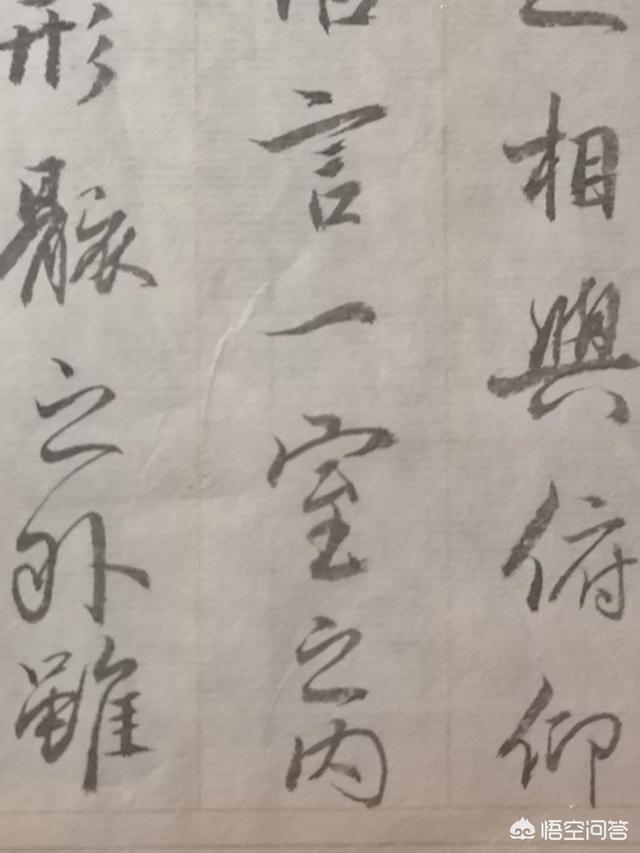 相與俯仰
言一室之内
形骸之外雖
悟空问答